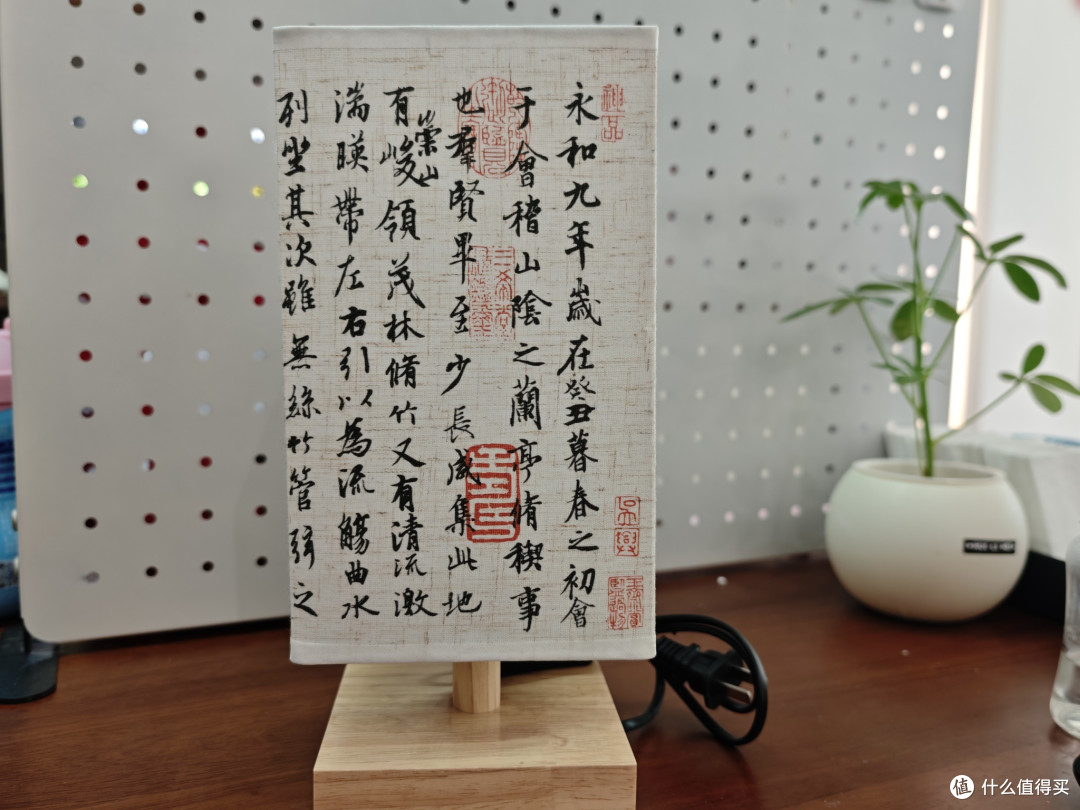 神品
永和九年歲在癸丑暮春之初會
于會稽山陰之蘭亭脩稧事
也羣賢畢至少長咸集此地
有崇山峻領茂林脩竹又有清流激
湍暎帶左右引以為流觴曲水
列坐其次雖無絲竹管弦之
值 什么值得买